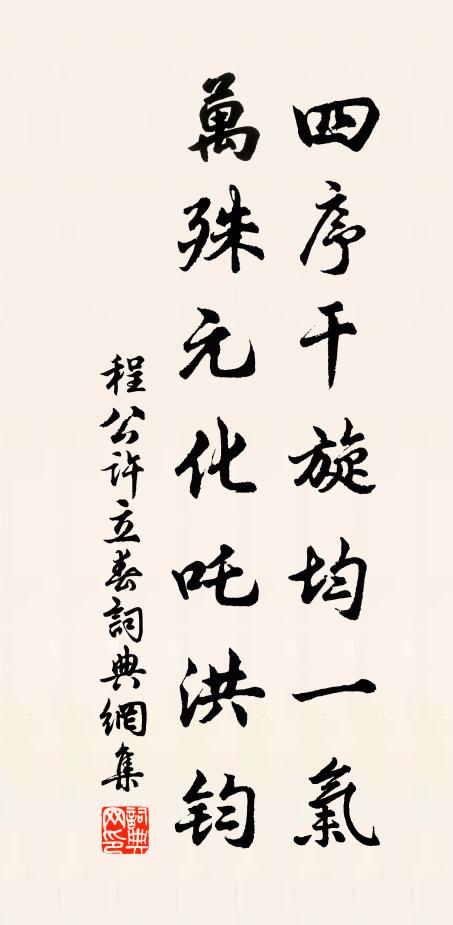 四序干旋均一氣
萬殊元化吒洪鈞
程公許立春詞典網集
詞典網印